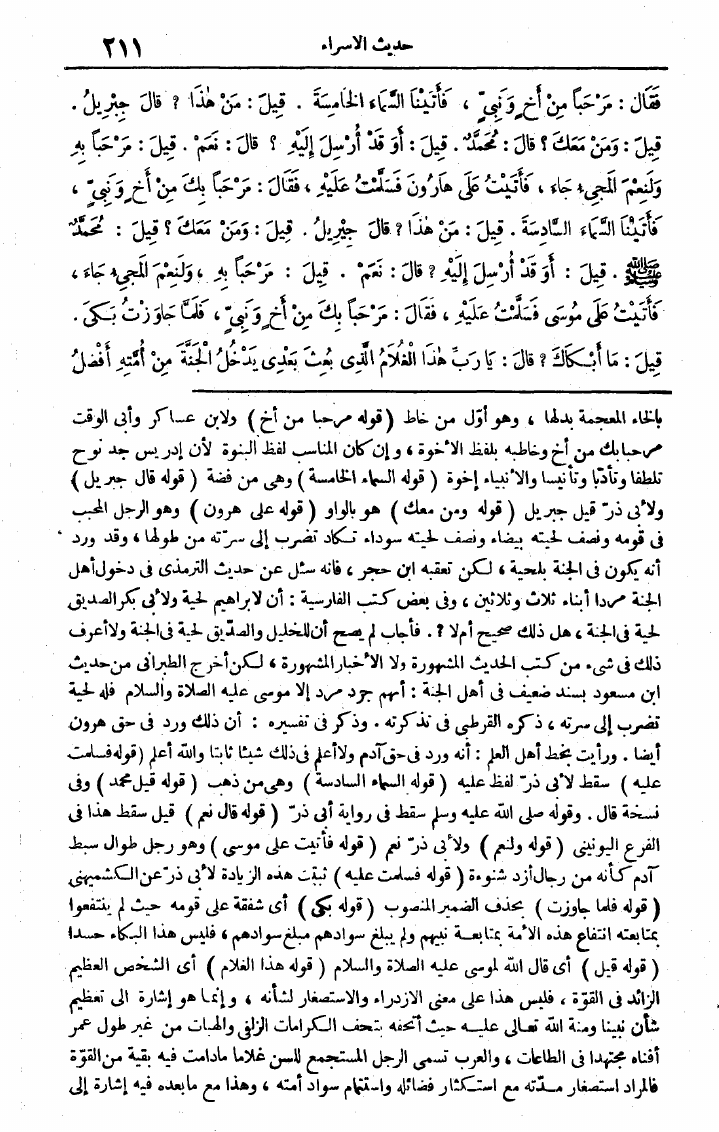 حديث الاسراء ٢١١
فَقَالَ : مَرْحَبًا مِنْ أَخٍ وَنَبِيٍّ ، فَأَتَيْنَا السَّمَاءَ الخَامِسَةَ . قِيلَ : مَنْ هٰذَا ؟ قالَ جِبْرِيلُ .
قِيلَ : وَمَنْ مَعَكَ ؟ قالَ : مُحَمَّدٌ . قِيلَ : أَوَ قَدْ أُرْسِلَ إِلَيْهِ ؟ قالَ : نَعَمْ . قِيلَ : مَرْحَبًا بِهِ
وَلَنِعْمَ المَجِيءُ جَاءَ ، فَأَتَيْتُ عَلَى هَارُونَ فَسَلَّمْتُ عَلَيْهِ ، فَقَالَ : مَرْحَبًا بِكَ مِنْ أَخٍ وَنَبِيٍّ ،
فَأَتَيْنَا السَّمَاءَ السَّادِسَةَ . قِيلَ : مَنْ هٰذَا ؟ قالَ جِبْرِيلُ . قِيلَ : وَمَنْ مَعَكَ ؟ قِيلَ : مُحَمَّدٌ
ﷺ . قِيلَ : أَوَ قَدْ أُرْسِلَ إِلَيْهِ ؟ قالَ : نَعَمْ . قِيلَ : مَرْحَبًا بِهِ ، وَلَنِعْمَ المَجِيءُ جَاءَ ،
فَأَتَيْتُ عَلَى مُوسَى فَسَلَّمْتُ عَلَيْهِ ، فَقَالَ : مَرْحَبًا بِكَ مِنْ أَخٍ وَنَبِيٍّ ، فَلَمَّا جَاوَزْتُ بَكَى .
قِيلَ : مَا أَبْكَاكَ ؟ قالَ : يَا رَبِّ هٰذَا الْغُلَامُ الَّذِى بُعِثَ بَعْدِى يَدْخُلُ الْجَنَّةَ مِنْ أُمَّتِهِ أَفْضَلُ
بالخاء المعجمة بدلها ، وهو أوّل من خاط ( قوله مرحبا من أخ ) ولابن عساكر وأبى الوقت
مرحبا بك من أخ وخاطبه بلفظ الأخوة ، وإن كان المناسب لفظ البنوة لأن إدريس جد نوح
تلطفا وتأدّبا وتأنيسا والأنبياء إخوة ( قوله السماء الخامسة ) وهى من فضة ( قوله قال جبريل )
ولأبى ذرّ قيل جبريل ( قوله ومن معك ) هو بالواو ( قوله على هرون ) وهو الرجل المحبب
فى قومه ونصف لحيته بيضاء ونصف لحيته سوداء تكاد تضرب إلى سرّته من طولها ، وقد ورد
أنه يكون فى الجنة بلحية ، لكن تعقبه ابن حجر ، فانه سئل عن حديث الترمذى فى دخول أهل
الجنة مردا أبناء ثلاث وثلاثين ، وفى بعض كتب الفارسية : أن لابراهيم لحية ولأبى بكر الصديق
لحية فى الجنة ، هل ذلك صحيح أم لا ؟ . فأجاب لم يصح أن للخليل والصدّيق لحية فى الجنة ولا أعرف
ذلك فى شىء من كتب الحديث المشهورة ولا الأخبار المشهورة ، لكن أخرج الطبرانى من حديث
ابن مسعود بسند ضعيف فى أهل الجنة : أنهم جرد مرد إلا موسى عليه الصلاة والسلام فله لحية
تضرب إلى سرته ، ذكره القرطبى فى تذكرته . وذكر فى تفسيره : أن ذلك ورد فى حق هرون
أيضا . ورأيت بخط أهل العلم : أنه ورد فى حق آدم ولا أعلم فى ذلك شيئا ثابتا والله أعلم ( قوله فسلمت
عليه ) سقط لأبى ذرّ لفظ عليه ( قوله السماء السادسة ) وهى من ذهب ( قوله قيل محمد ) وفى
نسخة قال . وقوله صلى الله عليه وسلم سقط فى رواية أبى ذرّ ( قوله قال نعم ) قيل سقط هذا فى
الفرع اليونينى ( قوله ولنعم ) ولأبى ذرّ نعم ( قوله فأتيت على موسى ) وهو رجل طوال سبط
آدم كأنه من رجال أزد شنوءة ( قوله فسلمت عليه ) ثبتت هذه الزيادة لأبى ذرّ عن الكشميهنى
( قوله فلما جاوزت ) بحذف الضمير المنصوب ( قوله بكى ) أى شفقة على قومه حيث لم ينتفعوا
بمتابعته انتفاع هذه الأمة بمتابعة نبيهم ولم يبلغ سوادهم مبلغ سوادهم ، فليس هذا البكاء حسدا
( قوله قيل ) أى قال الله لموسى عليه الصلاة والسلام ( قوله هذا الغلام ) أى الشخص العظيم
الزائد فى القوّة ، فليس هذا على معنى الازدراء والاستصغار لشأنه ، وإنما هو إشارة الى تعظيم
شأن نبينا ومنة الله تعالى عليه حيث أتحفه بتحف الكرامات الزلفى والهبات من غير طول عمر
أفناه مجتهدا فى الطاعات ، والعرب تسمى الرجل المستجمع للسن غلاما مادامت فيه بقية من القوّة
فالمراد استصغار مدّته مع استكثار فضائله واستتمام سواد أمته ، وهذا مع مابعده فيه إشارة إلى